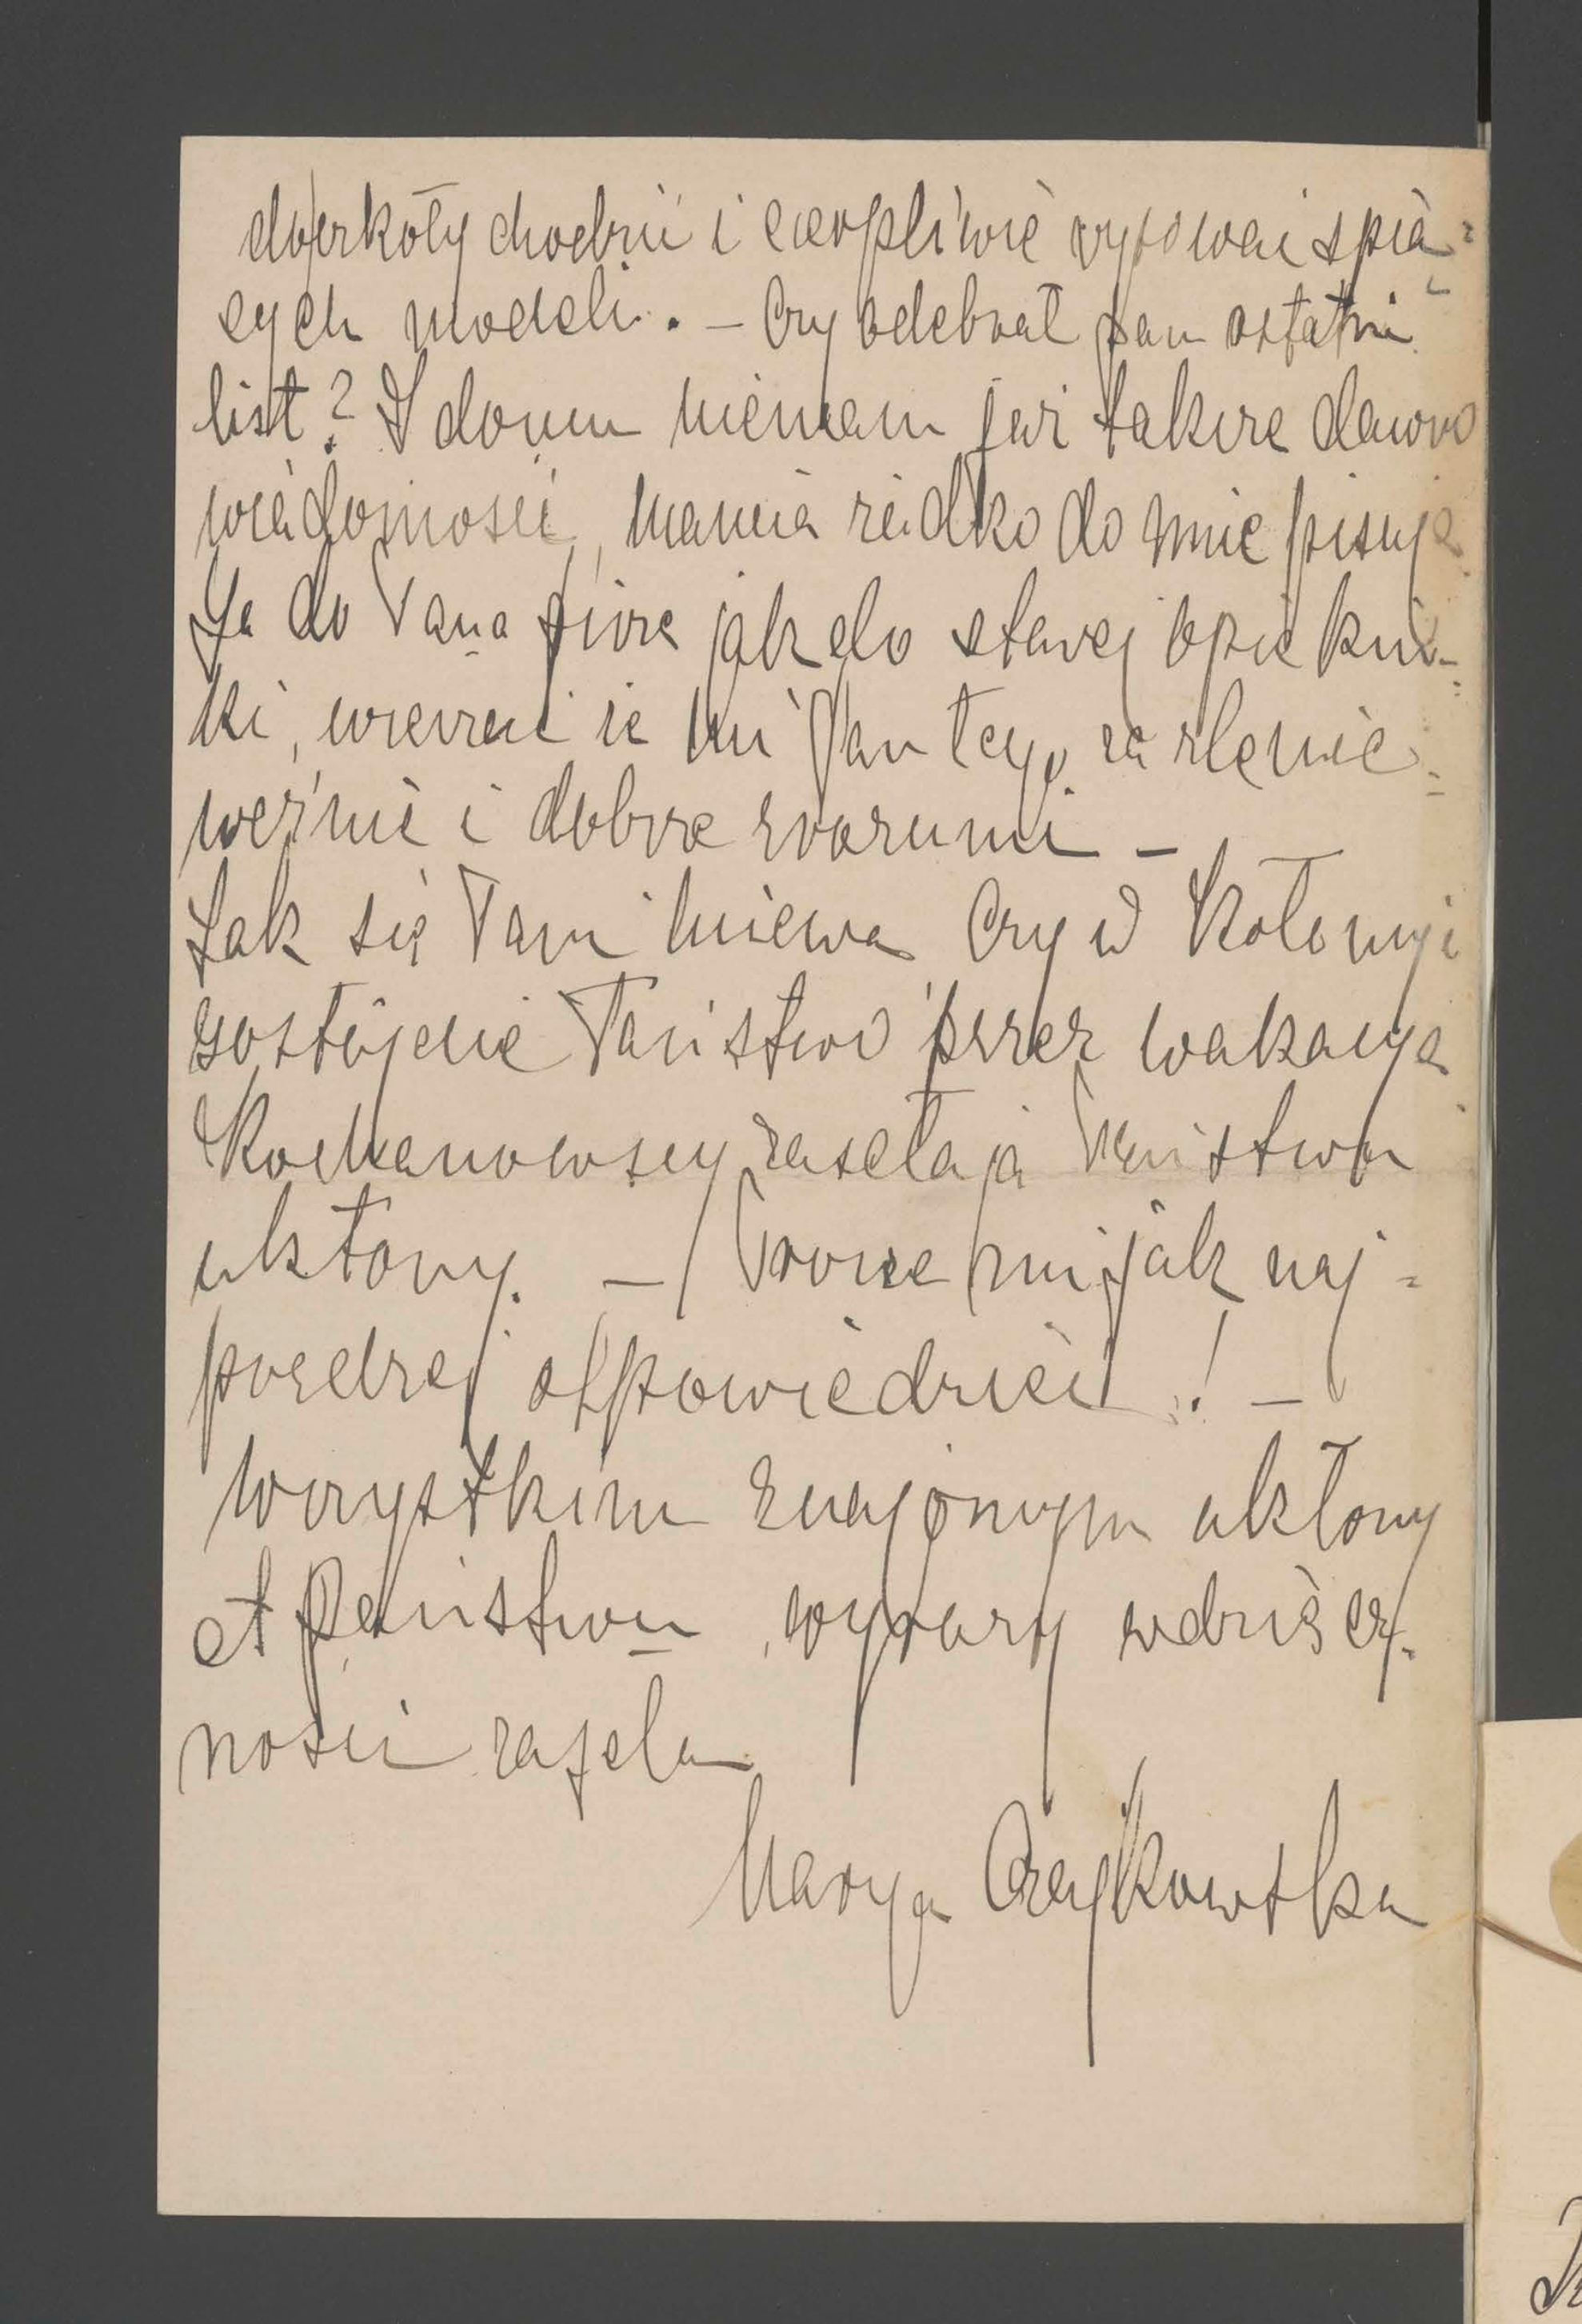 do szkoły chodzić i cierpliwie rysować śpią=
cych modeli. – Czy odebrał pan ostatni
list? Z domu niemam już także dawno
wiadomości, mama rzadko do mnie pisuje
Ja do Pana piszę jak do starej opiekun=
ki, wierzę że mi Pan tego za złe nie
weźmie i dobrze zrozumi –
Jak się Pan miewa Czy w Kołomyi
zostajecie Państwo przez wakacye
Kochanowscy zasełają Państwu
ukłony. – Proszę mi jak naj=
prędzej odpowiedzieć! –
Wszystkim znajomym ukłony
A Państwu wyrazy wdzięcz=
ności zasełam
Marya Czajkowska